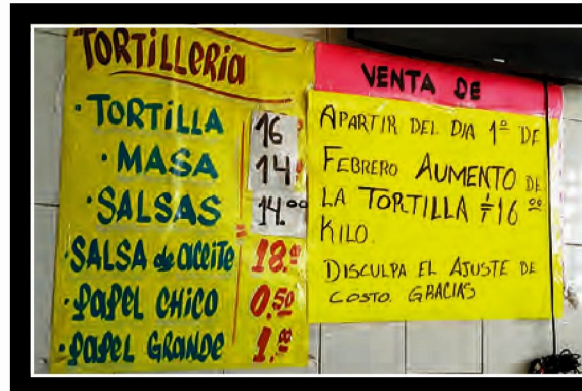 TORTILLERIA
· TORTILLA 16
· MASA 14
· SALSAS 14.00
· SALSA de aceite 18.00
· PAPEL CHICO 0.50
· PAPEL GRANDE 1.00
VENTA DE
APARTIR DEL DIA 1º DE
FEBRERO AUMENTO DE
LA TORTILLA 16 00
KILO.
DISCULPA EL AJUSTE DE
COSTO. GRACIAS